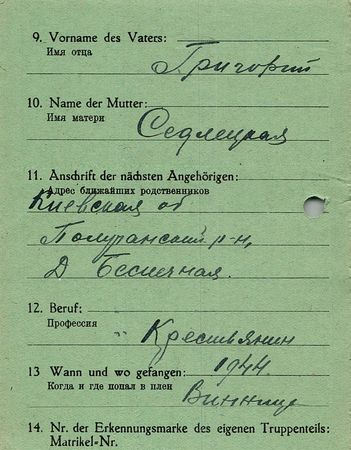 9. Vorname des Vaters:
Имя отца
Григорий
10. Name der Mutter:
Имя матери
Седлецкая
11. Anschrift der nächsten Angehörigen:
Адрес ближайших родственников
Киевская об
р-н,
Д Беспечная.
12. Beruf:
Профессия
Крестьянин
13 Wann und wo gefangen:
1944.
Когда и где попал в плен
Винница
14. Nr. der Erkennungsmarke des eigenen Truppenteils:
Matrikel-Nr.